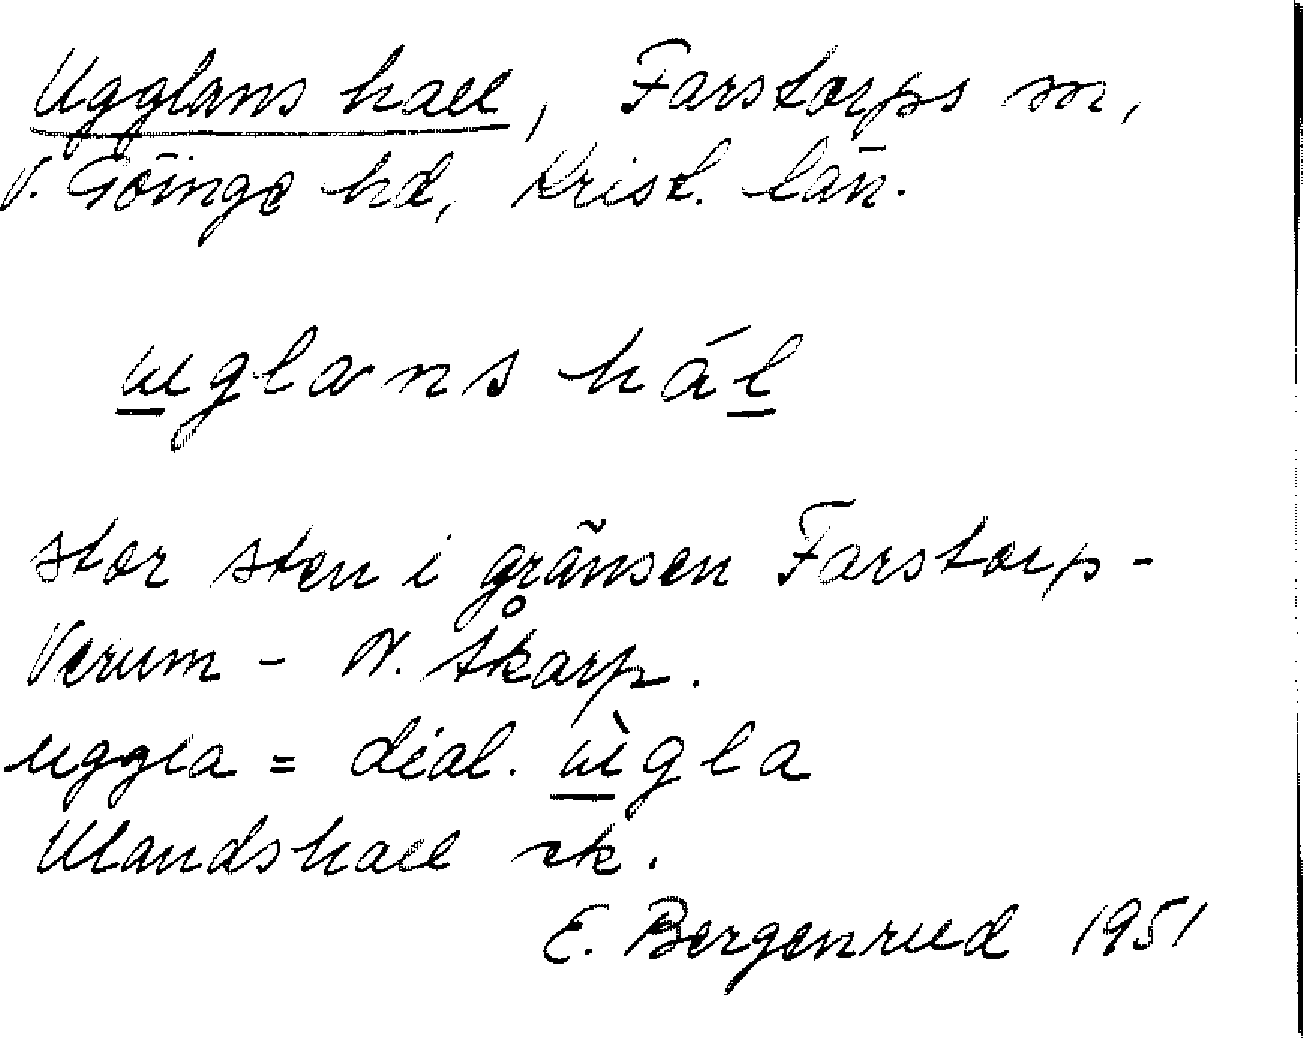 Ugglans hall, Farstorps sn,
V. Göinge hd, Krist. län.
uglans hál
stor sten i gränsen Farstorp-
Verum - N. Åkarp.
uggla = dial. ùgla
Ulandshall rk.
E. Bergenrud 1951